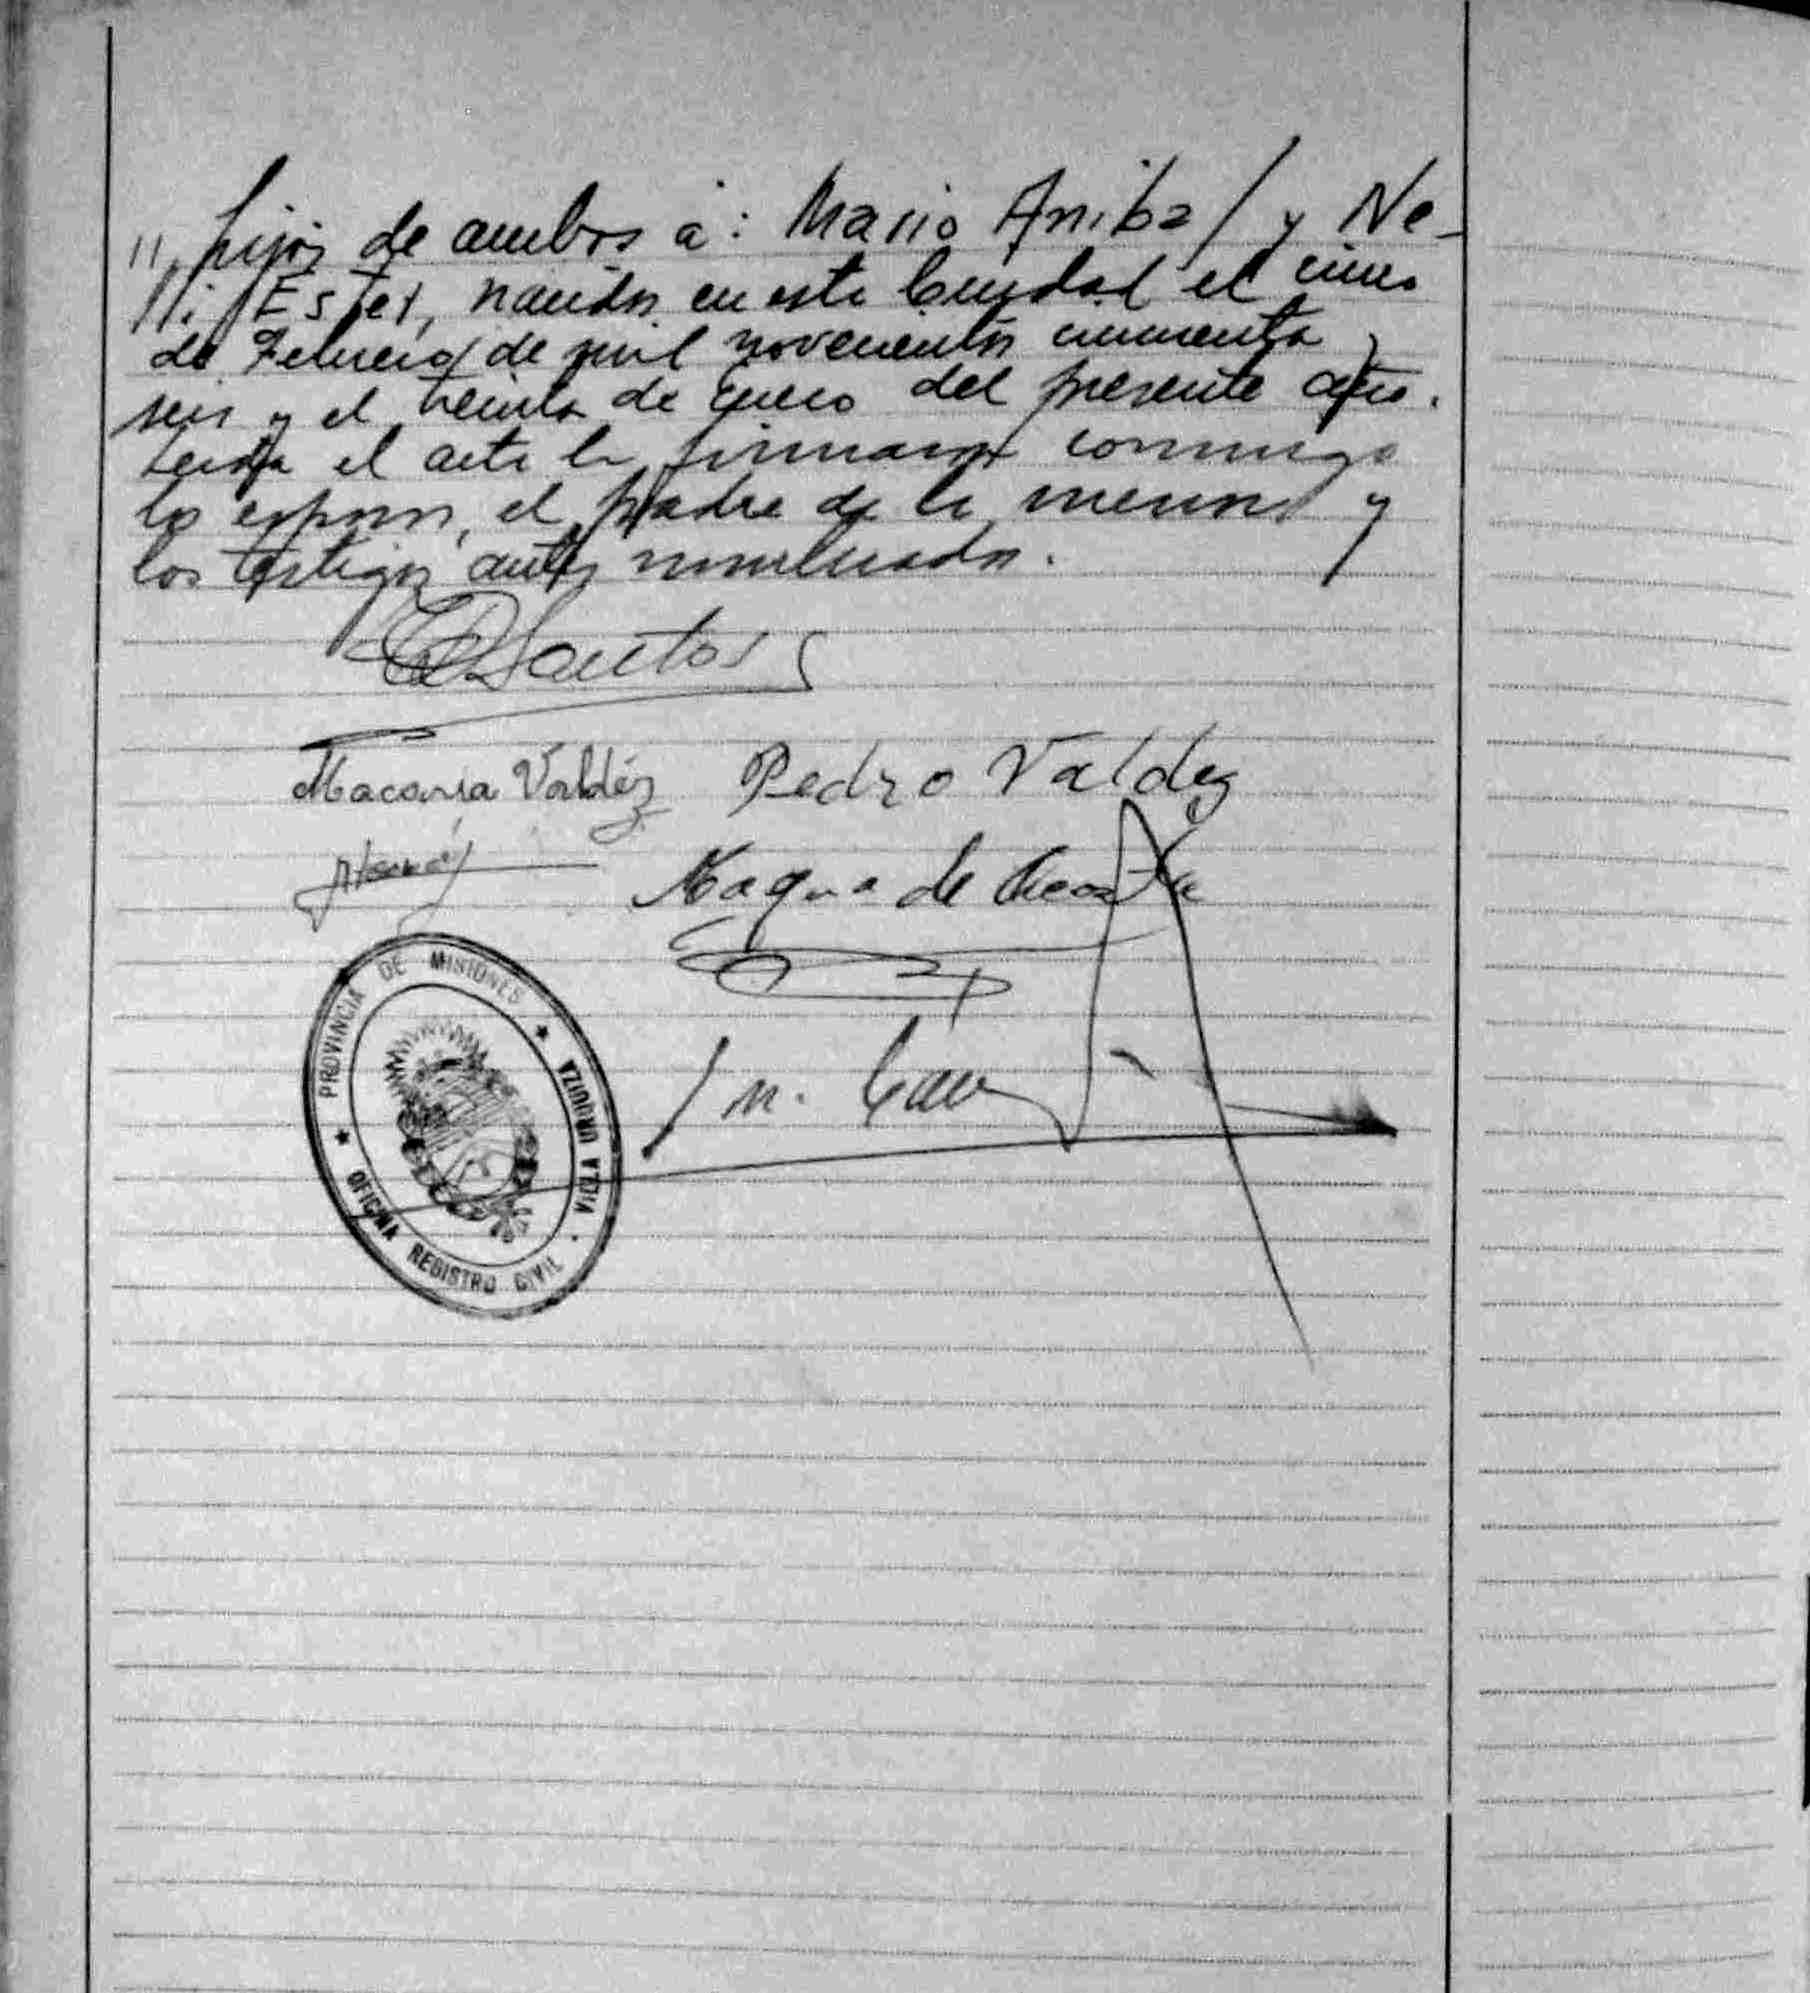 " hijos de ambos a: Mario Anibal y Ne-
lli Ester, nacidos en esta Ciudad el cinco
de Febrero de mil novecientos cincuenta y
seis y el treinta de Enero del presente año.
Leida el acta la firmaron conmigo
los esposos, el padre de la menor y
los testigos antes nombrados.
Santos
Macaria Valdéz Pedro Valdez
Magna de Acosta
PROVINCIA DE MISIONES
VILLA URQUIZA
OFICINA REGISTRO CIVIL